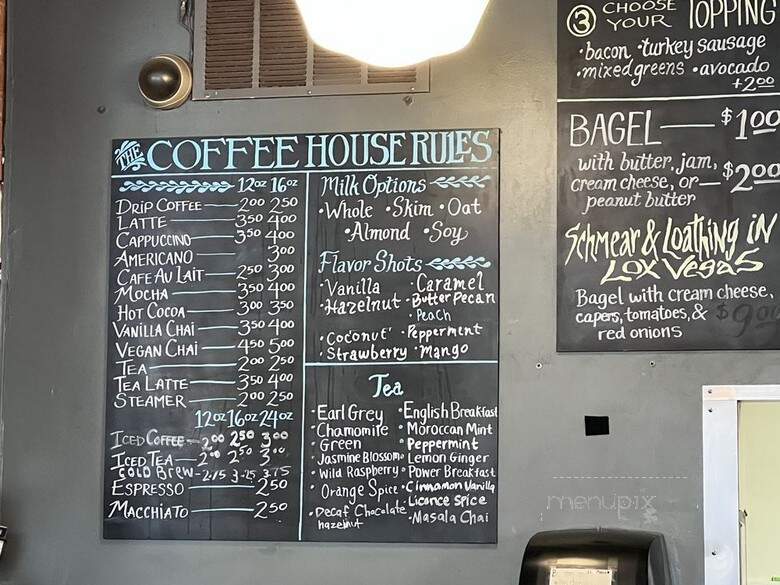 THE COFFEE HOUSE RULES
12oz 16oz
DRIP COFFEE 2.00 2.50
LATTE 3.50 4.00
CAPPUCCINO 3.50 4.00
AMERICANO 3.00
CAFE AU LAIT 2.50 3.00
MOCHA 3.50 4.00
HOT COCOA 3.00 3.50
VANILLA CHAI 3.50 4.00
VEGAN CHAI 4.50 5.00
TEA 2.00 2.50
TEA LATTE 3.50 4.00
STEAMER 2.00 2.50
12oz 16oz 24oz
ICED COFFEE 2.00 2.50 3.00
ICED TEA 2.00 2.50 3.00
COLD BREW 2.75 3.25 3.75
ESPRESSO 2.50
MACCHIATO 2.50
Milk Options
•Whole •Skim •Oat
•Almond •Soy
Flavor Shots
•Vanilla •Caramel
•Hazelnut •Butter Pecan
•Peach
•Coconut •Pepperment
•Strawberry •Mango
Tea
•Earl Grey •English Breakfast
•Chamomile •Moroccan Mint
•Green •Peppermint
•Jasmine Blossom •Lemon Ginger
•Wild Raspberry •Power Breakfast
•Orange Spice •Cinnamon Vanilla
•Decaf Chocolate hazelnut •Licorice Spice
•Masala Chai
3 CHOOSE YOUR TOPPING
•bacon •turkey sausage
•mixed greens •avocado
+2.00
BAGEL $1.00
with butter, jam,
cream cheese, or $2.00
peanut butter
Schmear & Loathing in
Lox Vegas
Bagel with cream cheese,
capers, tomatoes, & $9.00
red onions
menupix